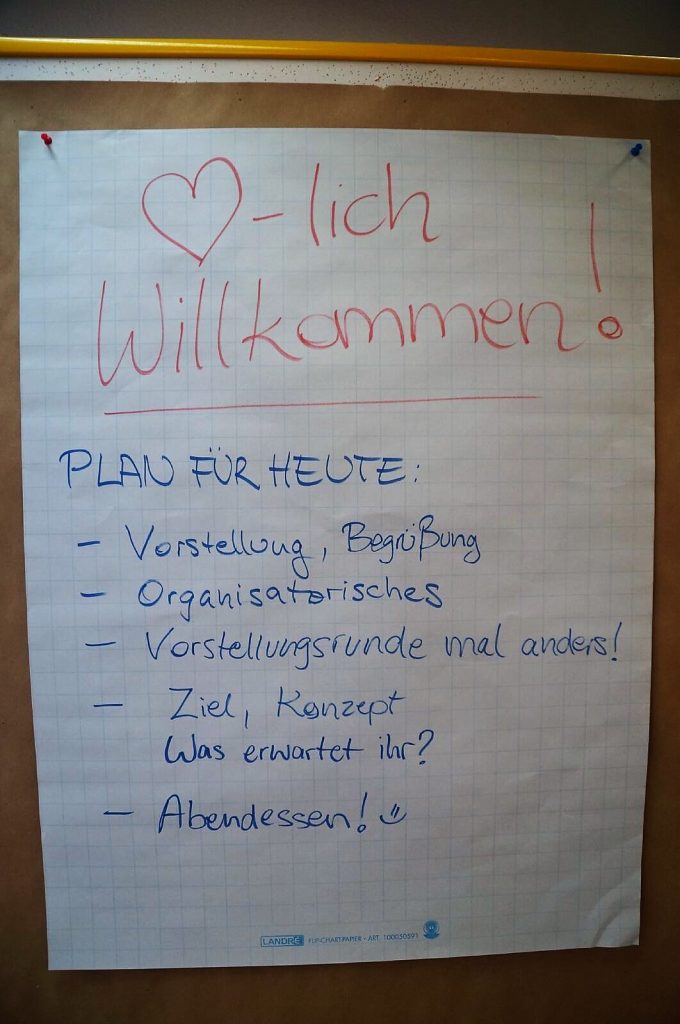 ♡-lich
Willkommen!
PLAN FÜR HEUTE:
- Vorstellung, Begrüßung
- Organisatorisches
- Vorstellungsrunde mal anders!
- Ziel, Konzept
Was erwartet ihr?
- Abendessen! :)
LANDRÉ FLIPCHARTPAPIER - ART. 100050591